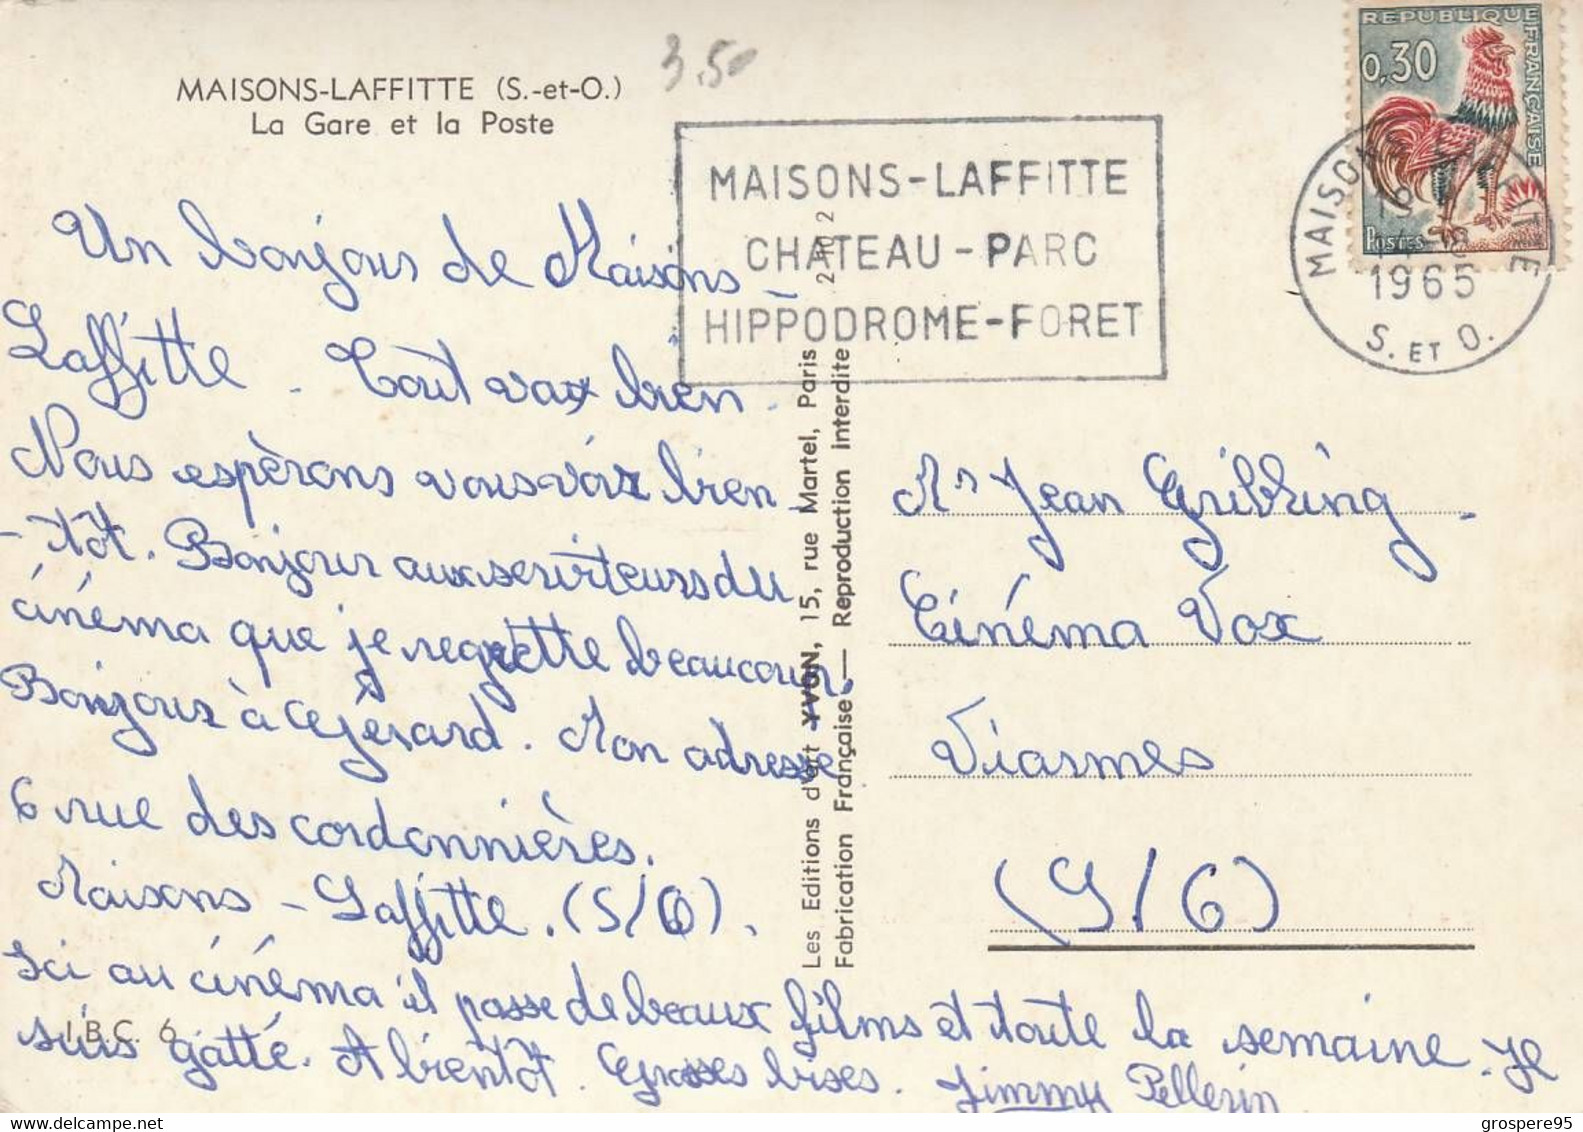 MAISONS-LAFFITTE (S.-et-O.)
La Gare et la Poste
3.50
REPUBLIQUE FRANÇAISE
0,30
POSTES
MAISONS-LAFFITTE
CHATEAU-PARC
HIPPODROME-FORET
1965
S. ET O.
Un bonjour de Maisons-
Laffitte. Tout vax bien.
Nous espèrons vous voir bien
-tôt. Bonjour aux serviteurs du
cinéma que je regrette beaucoup.
Bonjour à Gérard. Mon adresse
6 rue des cordonnières.
Maisons-Laffitte. (S/O).
Ici au cinéma il passe de beaux films et toute la semaine. Je
suis gatté. A bientôt. Grosses bises. Jimmy Pellerin
Mr Jean
Cinéma Vox
Viarmes
(S/O)
Les Editions d'art YVON, 15, rue Martel, Paris
Fabrication Française — Reproduction interdite
I.B.C. 6
grospere95